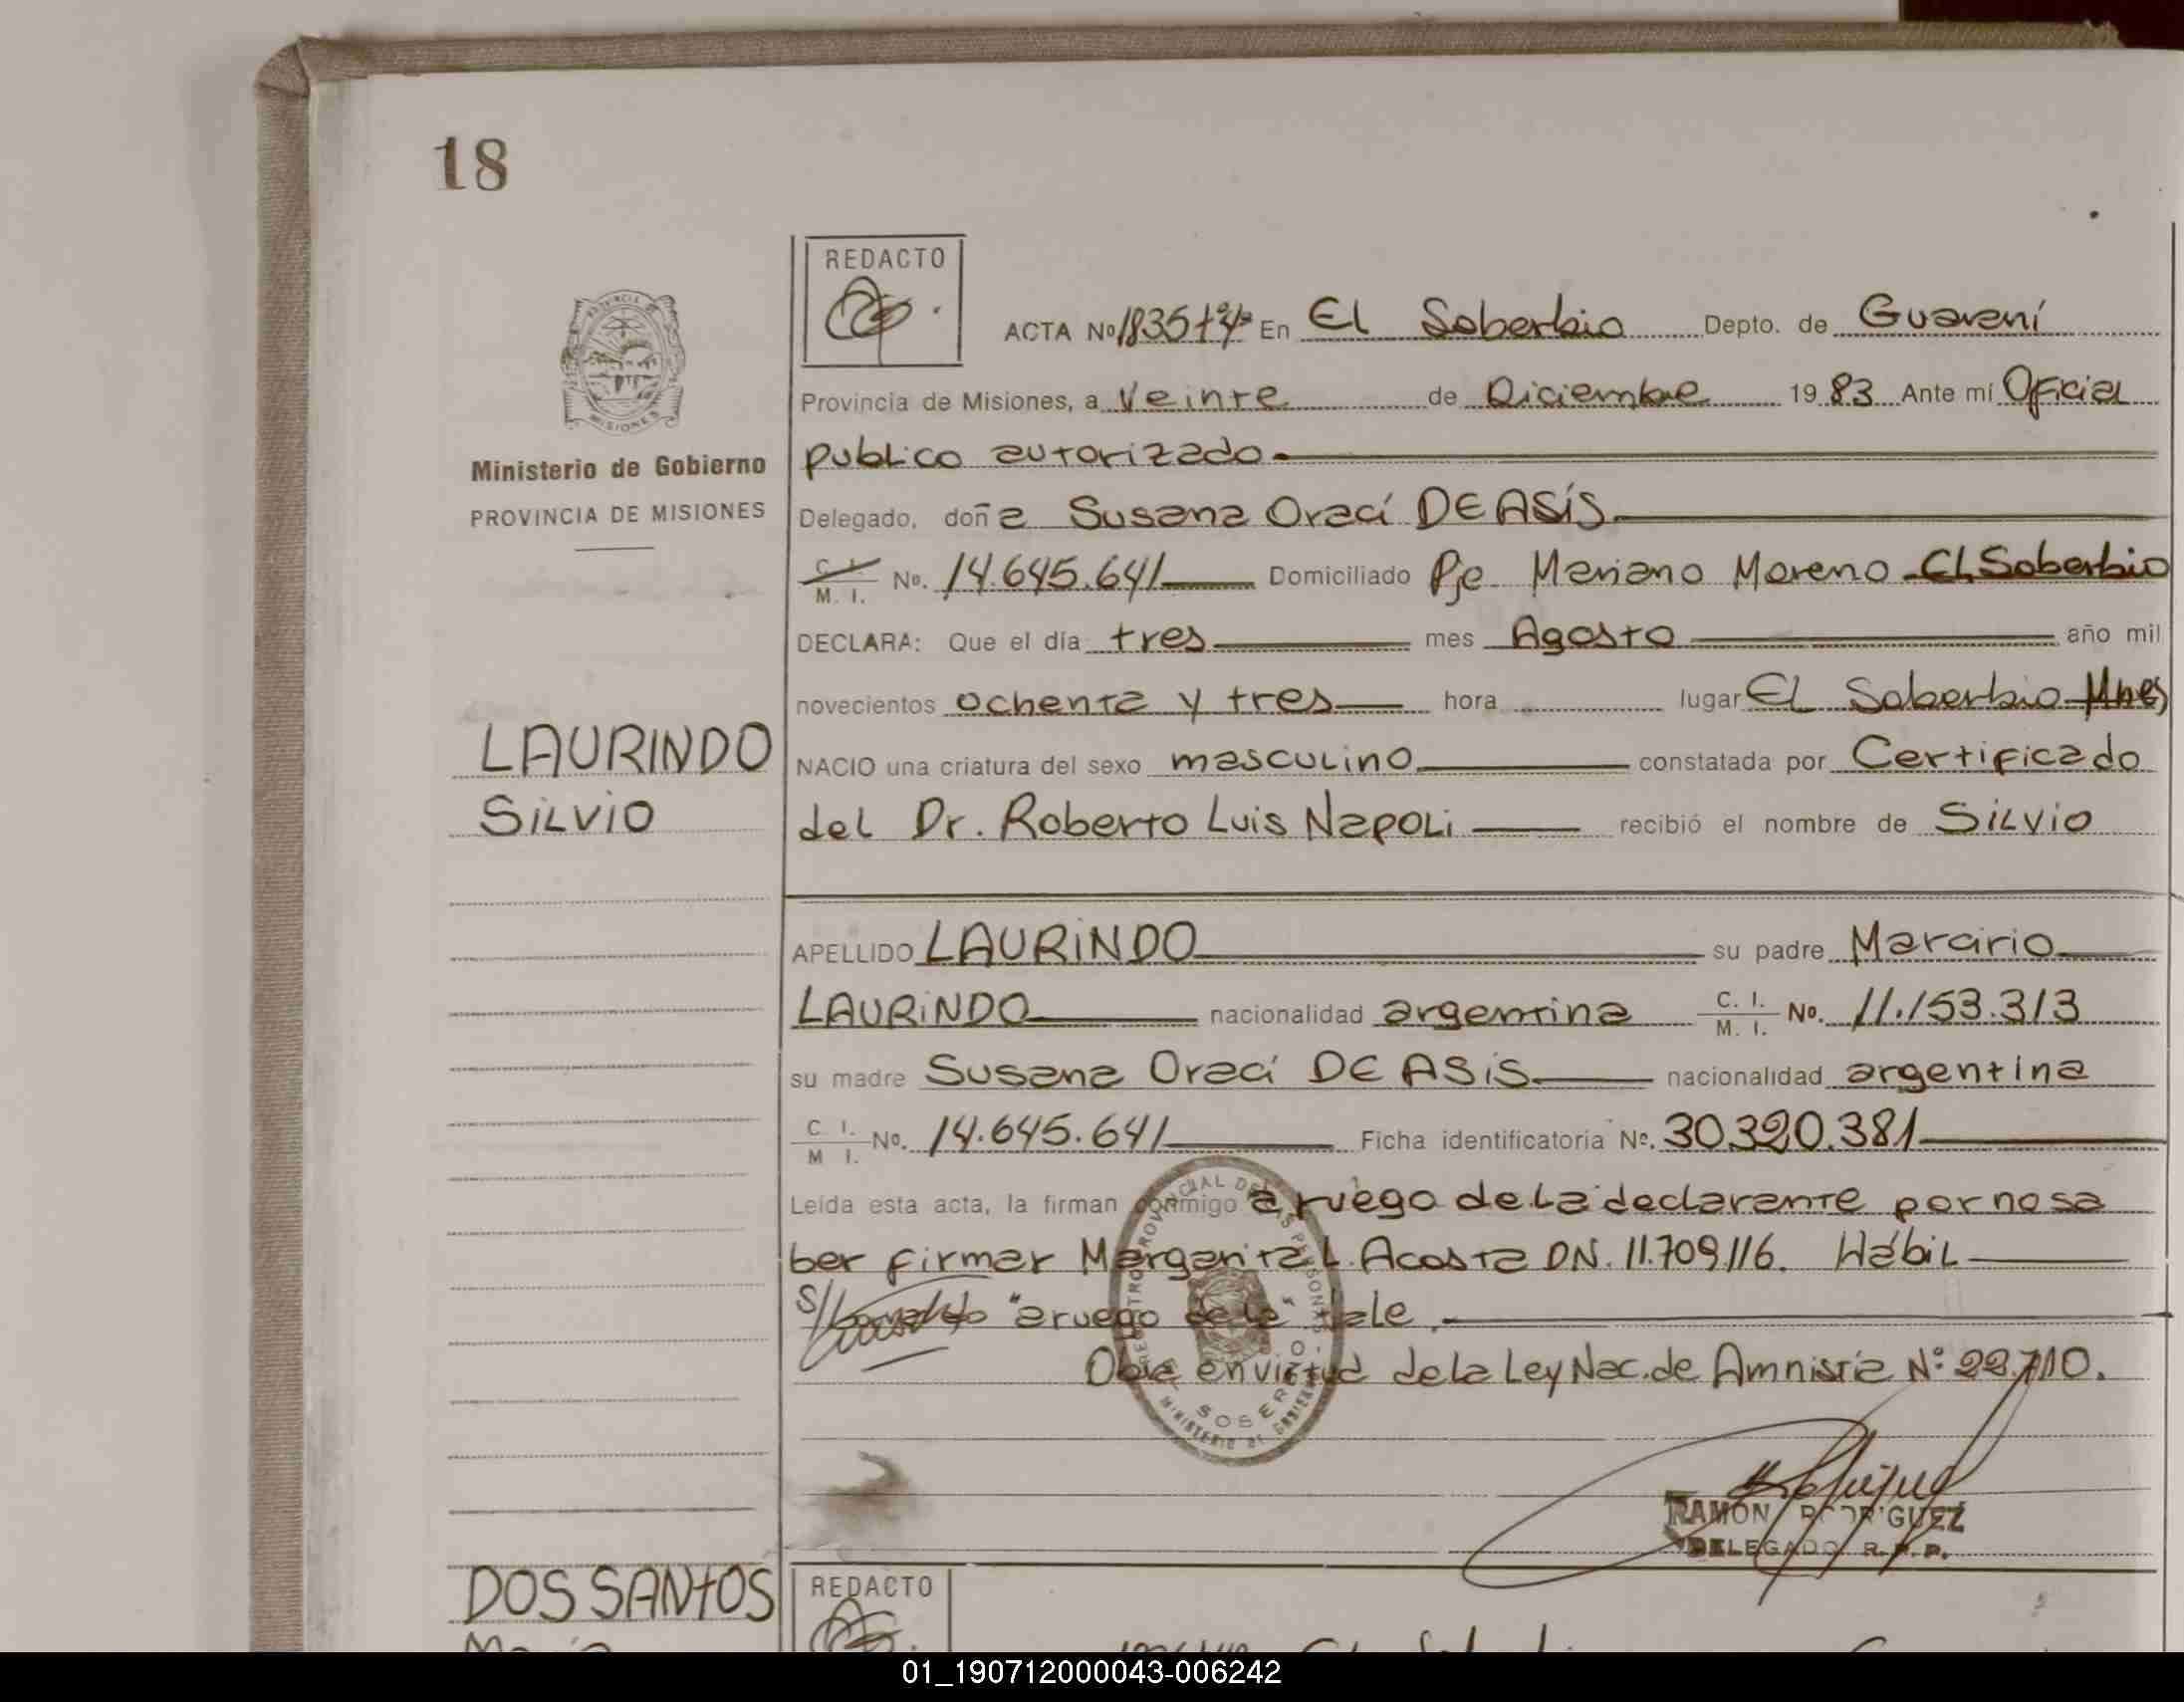 18
REDACTO
ACTA No 1835 tº4º En El Soberbio Depto. de Guaraní
Provincia de Misiones, a Veinte de Diciembre 1983 Ante mí Oficial
publico autorizado
Ministerio de Gobierno
PROVINCIA DE MISIONES
Delegado, doña Susana Orací DE ASÍS
C. I. M. I. No. 14.645.641 Domiciliado Pje Mariano Moreno El Soberbio
DECLARA: Que el día tres mes Agosto año mil
novecientos ochenta y tres hora lugar El Soberbio Mnes
LAURINDO
SILVIO
NACIO una criatura del sexo masculino constatada por Certificado
del Dr. Roberto Luis Napoli recibió el nombre de Silvio
APELLIDO LAURINDO su padre Marcirio
LAURINDO nacionalidad argentina C. I. M. I. No. 11.153.313
su madre Susana Orací DE ASIS nacionalidad argentina
C. I. M I. No. 14.645.641 Ficha identificatoria No. 30.320.381
Leída esta acta, la firman conmigo a ruego de la declarante por no sa
ber firmar Margarita L. Acosta DN. 11.709.116. Hábil
S/ "a ruego de la" Vale.
Obra en virtud de la Ley Nac. de Amnistía Nº 22.710.
REGISTRO PROVINCIAL DE LAS PERSONAS
EL SOBERBIO
MINISTERIO DE GOBIERNO
RAMON RODRIGUEZ
DELEGADO R.P.P.
DOS SANTOS
REDACTO
01_190712000043-006242